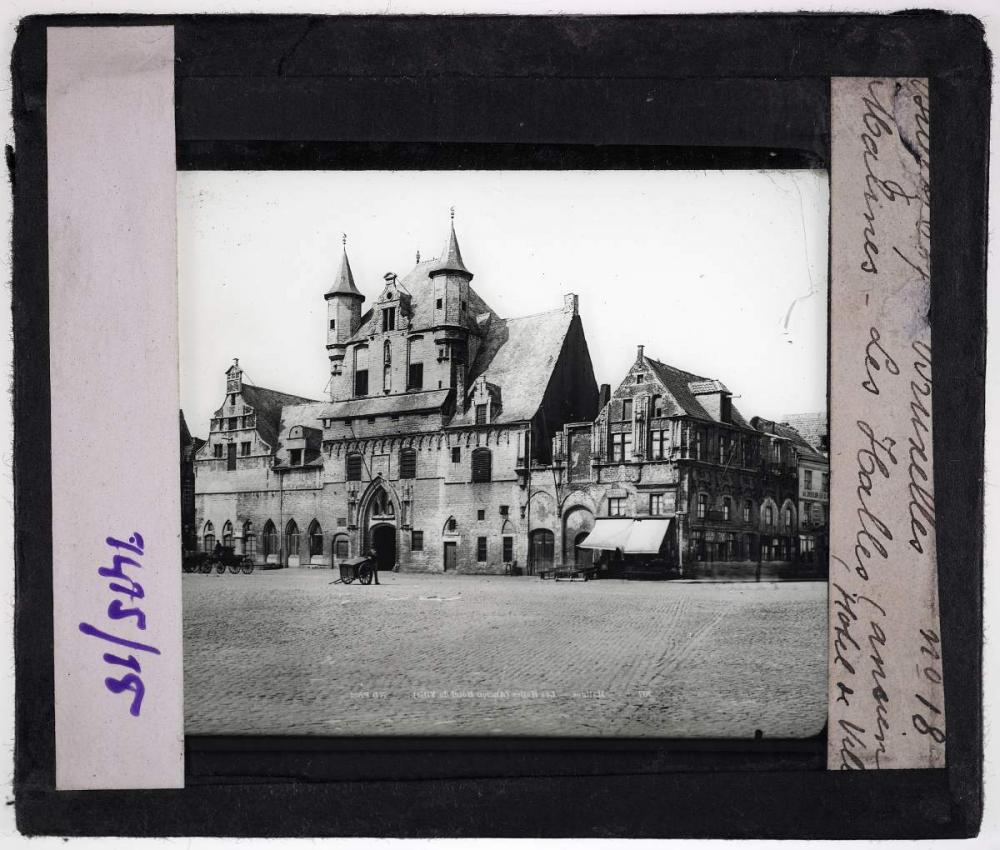 7495/18
Bruxelles no 18
Malines - Les Halles (ansien
Hotel de Vill
Malines — Les Halles (Ancien Hôtel de Ville)